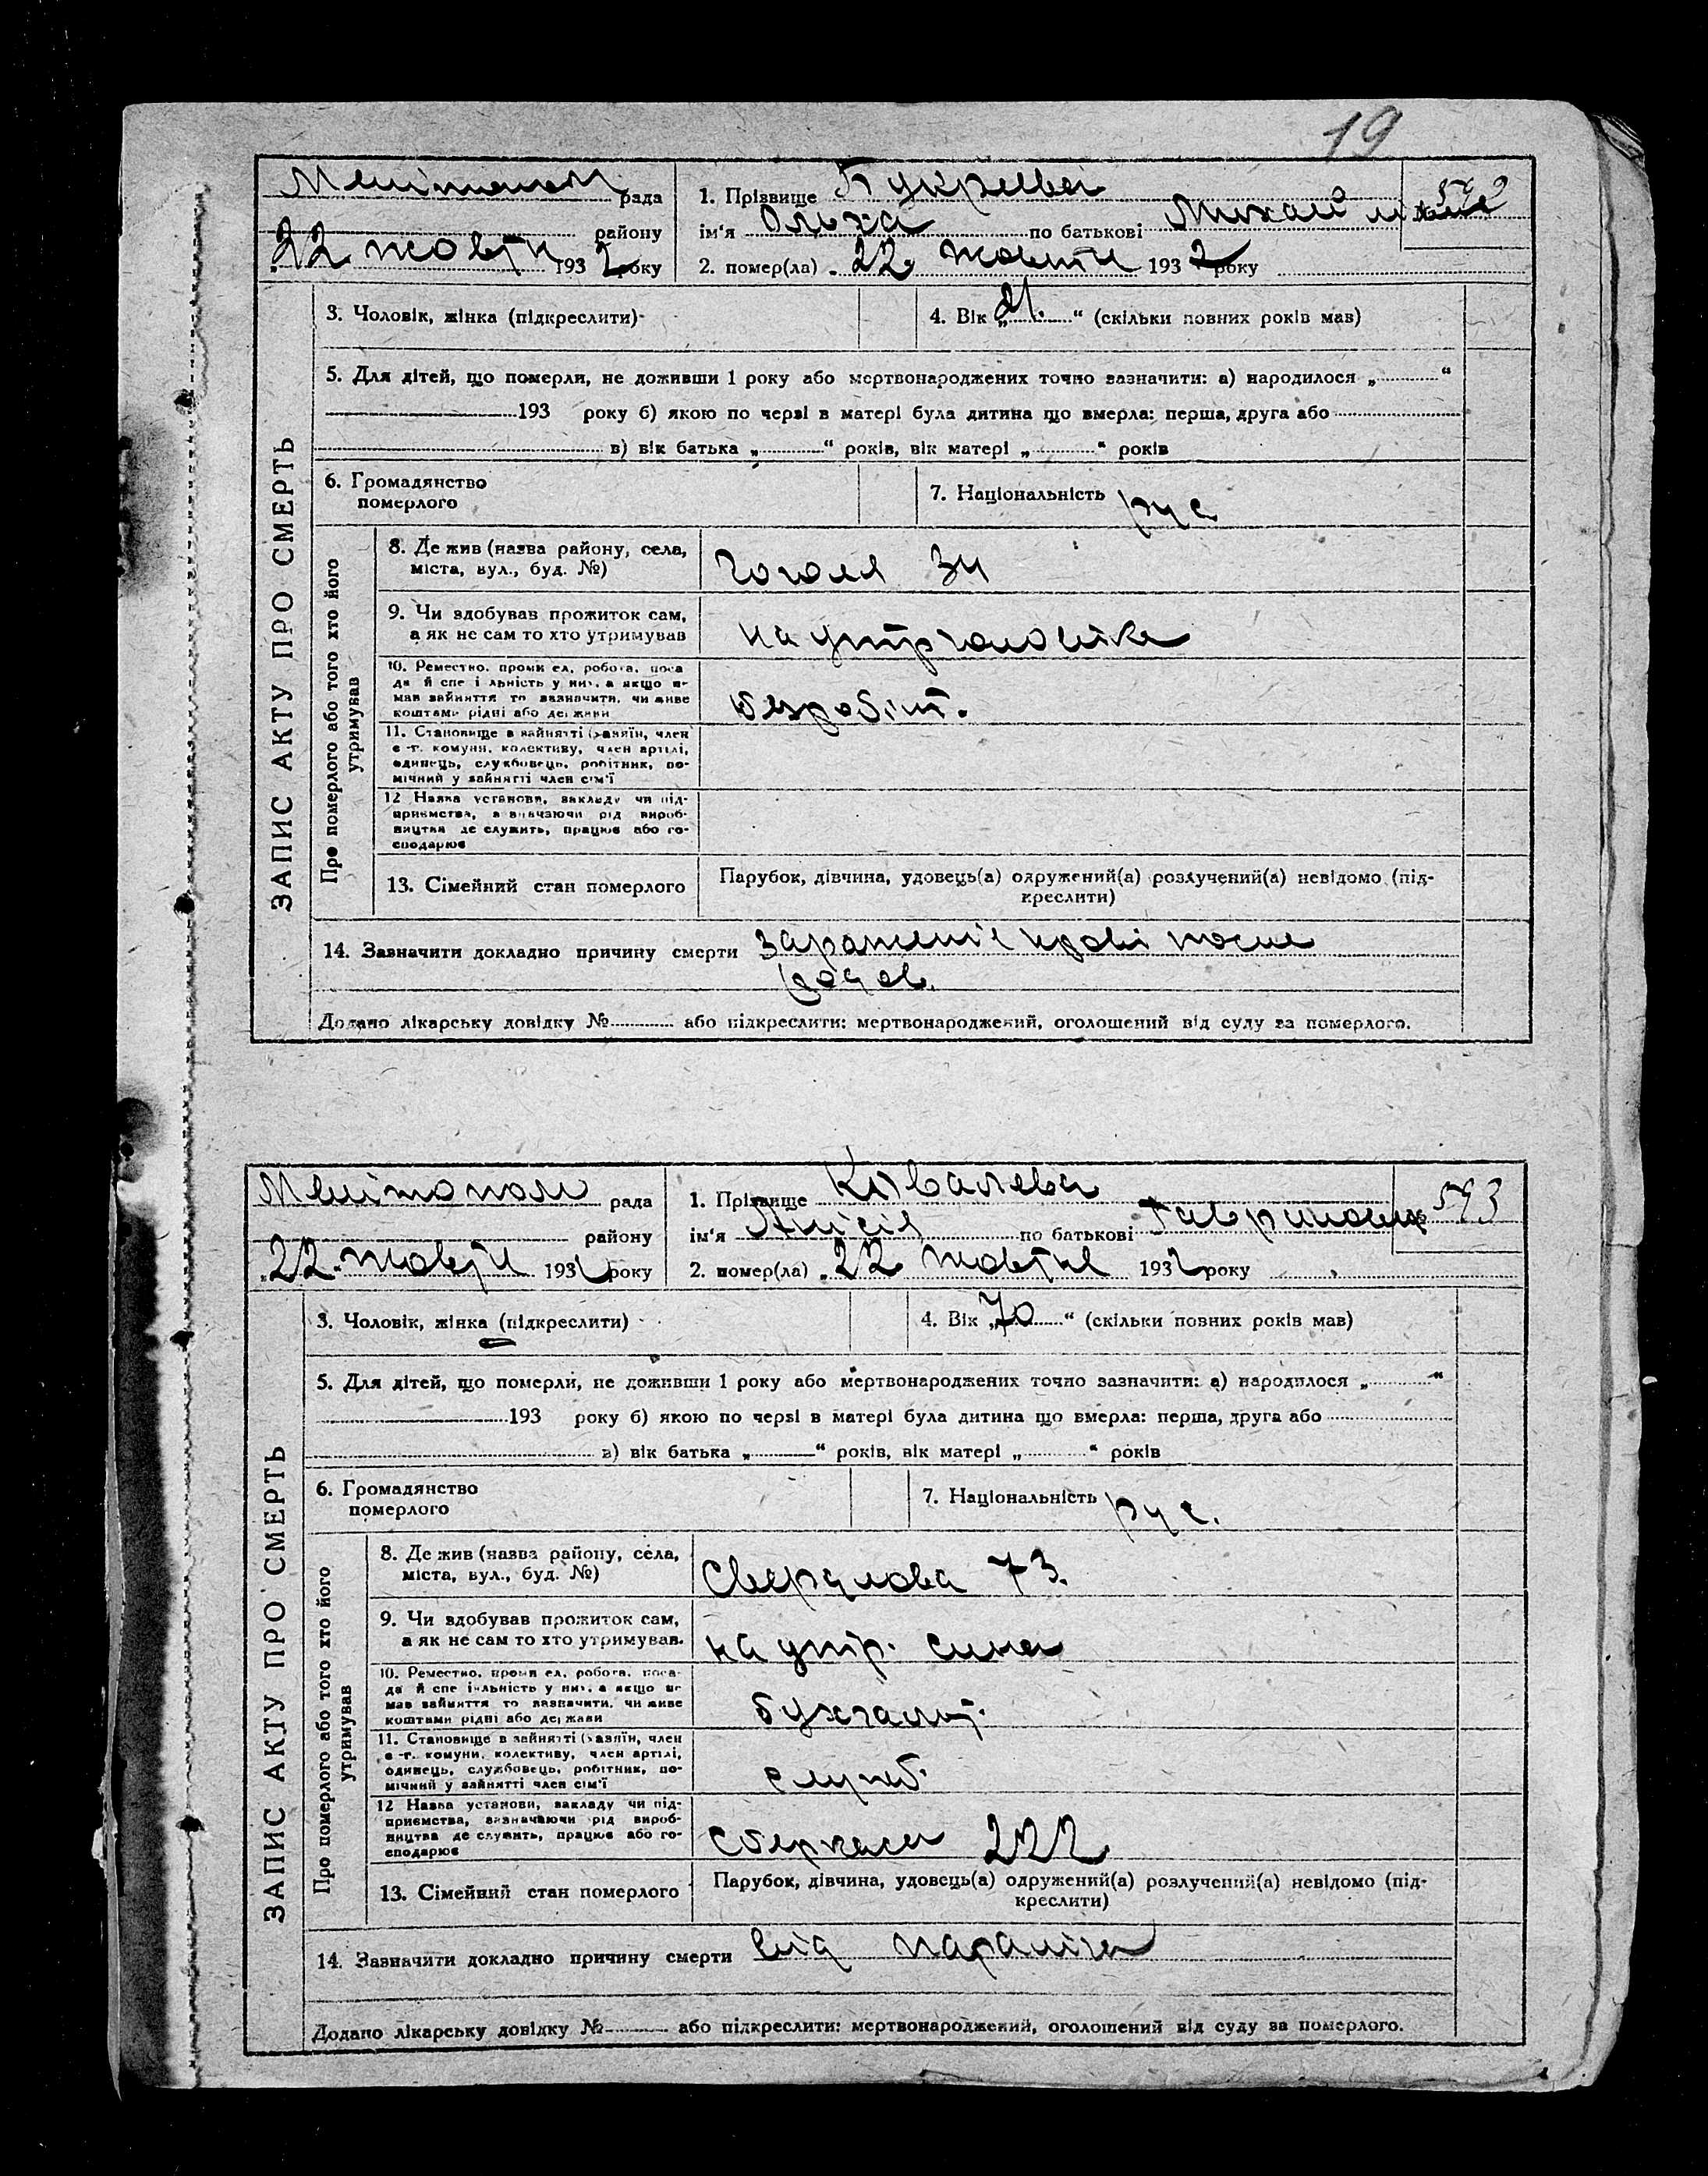 19
Мелітополь рада
1. Прізвище Букреева
592
району
ім'я Ольга по батькові Михайлівна
22 жовтн 1932 року
2. помер(ла) „22 жовтн 1932 року
ЗАПИС АКТУ ПРО СМЕРТЬ
3. Чоловік, жінка (підкреслити)
4. Вік „21." (скільки повних років мав)
5. Для дітей, що померли, не доживши 1 року або мертвонароджених точно зазначити: а) народилося „ "
193 року б) якою по черзі в матері була дитина що вмерла: перша, друга або
в) вік батька „ " років, вік матері „ " років
6. Громадянство
померлого
7. Національність рус
Про померлого або того хто його
утримував
8. Де жив (назва району, села,
міста, вул., буд. №)
Гоголя 34
9. Чи здобував прожиток сам,
а як не сам то хто утримував
на утр чоловіка
10. Ремество, промисел, робота, поса
да й спеціяльність у них, а якщо не
мав зайняття то зазначити, чи живе
коштами рідні або держави
безробітн.
11. Становище в зайнятті (хазяїн, член
с.-г. комуни, колективу, член артілі,
одинець, службовець, робітник, по-
мічний у зайнятті член сім'ї
12 Назва установи, закладу чи під-
приємства, зазначаючи рід вироб-
ництва де служить, працює або го-
сподарює
13. Сімейний стан померлого
Парубок, дівчина, удовець(а) одружений(а) розлучений(а) невідомо (під-
креслити)
14. Зазначити докладно причину смерти зараженіе крові после
родов.
Додано лікарську довідку № або підкреслити: мертвонароджений, оголошений від суду за померлого.
Мелітополь рада
1. Прізвище Ковалева
593
району
ім'я Анісія по батькові Гавриловна
22 жовтн 1932 року
2. помер(ла) „22 жовтня 1932 року
ЗАПИС АКТУ ПРО СМЕРТЬ
3. Чоловік, жінка (підкреслити)
4. Вік „70" (скільки повних років мав)
5. Для дітей, що померли, не доживши 1 року або мертвонароджених точно зазначити: а) народилося „ "
193 року б) якою по черзі в матері була дитина що вмерла: перша, друга або
в) вік батька „ " років, вік матері „ " років
6. Громадянство
померлого
7. Національність рус.
Про померлого або того хто його
утримував
8. Де жив (назва району, села,
міста, вул., буд. №)
Свердлова 73.
9. Чи здобував прожиток сам,
а як не сам то хто утримував.
на утр. сина
10. Ремество, промисел, робота, поса-
да й спеціяльність у них, а якщо не
мав зайняття то зазначити, чи живе
коштами рідні або держави
бухгалт.
11. Становище в зайнятті (хазяїн, член
с.-г. комуни, колективу, член артілі,
одинець, службовець, робітник, по-
мічний у зайнятті член сім'ї
служб.
12 Назва установи, закладу чи під-
приємства, зазначаючи рід вироб-
ництва де служить, працює або го-
сподарює
Сберкаса 222
13. Сімейний стан померлого
Парубок, дівчина, удовець(а) одружений(а) розлучений(а) невідомо (під-
креслити)
14. Зазначити докладно причину смерти від параліча
Додано лікарську довідку № або підкреслити: мертвонароджений, оголошений від суду за померлого.